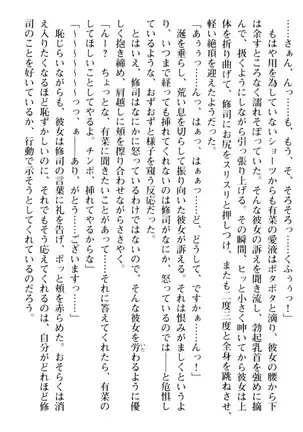 ……さぁん、んっ……も、もう、そ、そろそろっ……くふぅぅっ！」
もはや用を為していないショーツからも有菜の愛液はポタポタと滴り、彼女の腰から下
は余すところなく濡れそぼっていた。そんな彼女の訴えを聞き流し、勃起乳首を強めに摘
んで、扱くようにしながら引っ張り上げる。その瞬間、ヒッと小さく呻いてから彼女は上
体を折り曲げて、修司にお尻をスリスリと押しつけ、またも二度三度と全身を跳ねさせ、
軽い絶頂を迎えたようだった。
「あぅぅっ……んっ、はっ、はぁぁっ……ど、どうして、ですかぁ……んっ！」
涎を垂らし、荒い息を切らして振り向いた彼女が訴える。それは恨みがましくという
か、いつまで経っても挿れてくれないのは修司がなにか、怒っているのでは――と危惧し
ているような、おずおずと様子を窺う反応だった。
もちろん、修司はなにかに怒っているわけではないので、そんな彼女を労わるように優
しく抱き締め、肩越しに頬を擦り合わせながらささやく。
「んー？　ちょっとな、有菜に聞きたいことがあって……それに答えてくれたら、有菜の
してほしいことしてやるよ。チンポ、挿してやるからな」
「～～～～～つっっ、ぁ――あり、がとう……ございますっ……」
恥じらいながらも、彼女は修司の言葉に礼を告げ、ポッと頬を赤らめた。おそらくは消
え入りたくなるほど恥ずかしいのに、それでもそう伝えてくれるのは、自分がどれほど修
司のことを好いているか、行動で示そうとしてくれているのだろう。